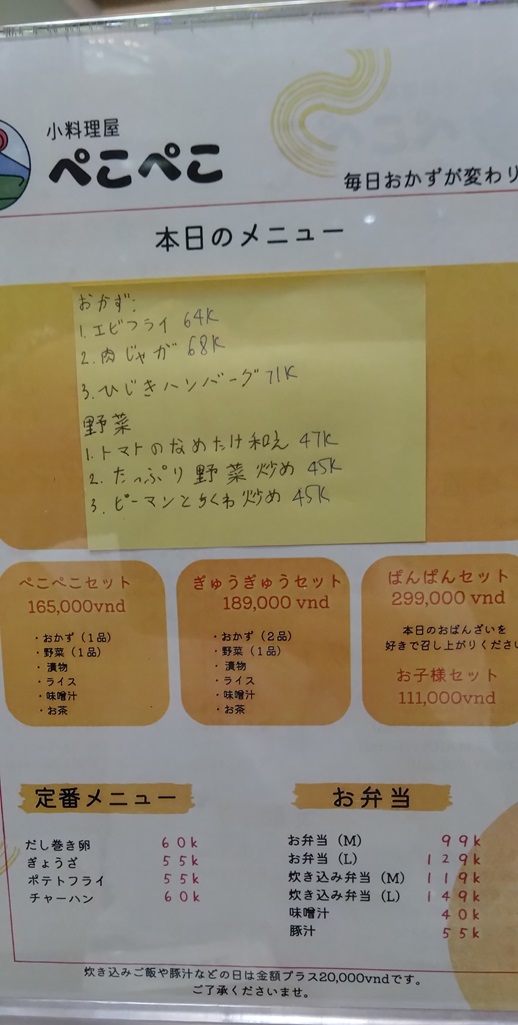 小料理屋
ぺこぺこ
毎日おかずが変わり
本日のメニュー
おかず:
1. エビフライ 64K
2. 肉じゃが 68K
3. ひじきハンバーグ 71K
野菜
1. トマトのなめたけ和え 47K
2. たっぷり野菜炒め 45K
3. ピーマンとちくわ炒め 45K
ぺこぺこセット
165,000vnd
・おかず（1品）
・野菜（1品）
・漬物
・ライス
・味噌汁
・お茶
ぎゅうぎゅうセット
189,000 vnd
・おかず（2品）
・野菜（1品）
・漬物
・ライス
・味噌汁
・お茶
ぱんぱんセット
299,000 vnd
本日のおばんざいを
好きで召し上がりくださ
お子様セット
111,000vnd
定番メニュー
だし巻き卵 60k
ぎょうざ 55k
ポテトフライ 55k
チャーハン 60k
お弁当
お弁当（M） 99k
お弁当（L） 129k
炊き込み弁当（M） 119k
炊き込み弁当（L） 149k
味噌汁 40k
豚汁 55k
炊き込みご飯や豚汁などの日は金額プラス20,000vndです。
ご了承くださいませ。